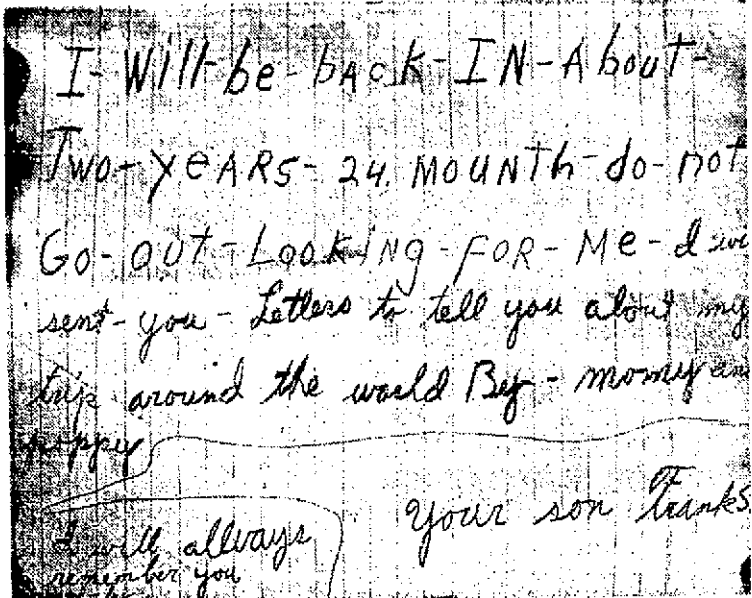 I-Will-be-bAck-IN-About-
Two-yeARS-24. MOUNTh-do-not
Go-OUT-LOOKiNg-FOR-Me-I wi
sent-you-Letters to tell you about my
trip around the world By-momy an
poppy
your son Franks
I will allways
remember you